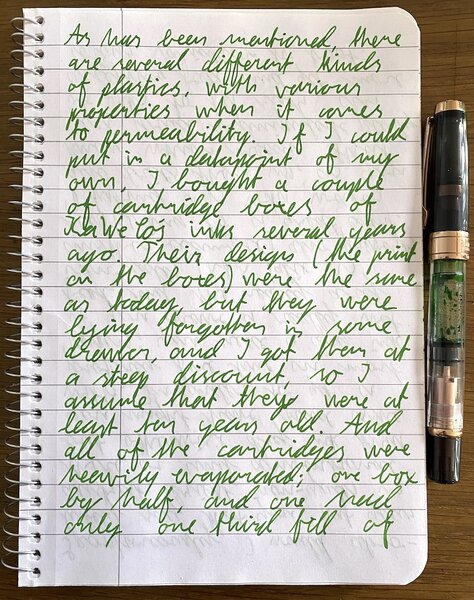 As has been mentioned, there
are several different kinds
of plastics, with various
properties when it comes
to permeability. If I could
put in a datapoint of my
own, I bought a couple
of cartridge boxes of
KaWeCo's inks several years
ago. Their designs (the print
on the boxes) were the same
as today, but they were
lying forgotten in some
drawer, and I got them at
a steep discount, so I
assume that they were at
least ten years old. And
all of the cartridges were
heavily evaporated; one box
by half, and one had
only one third fell of